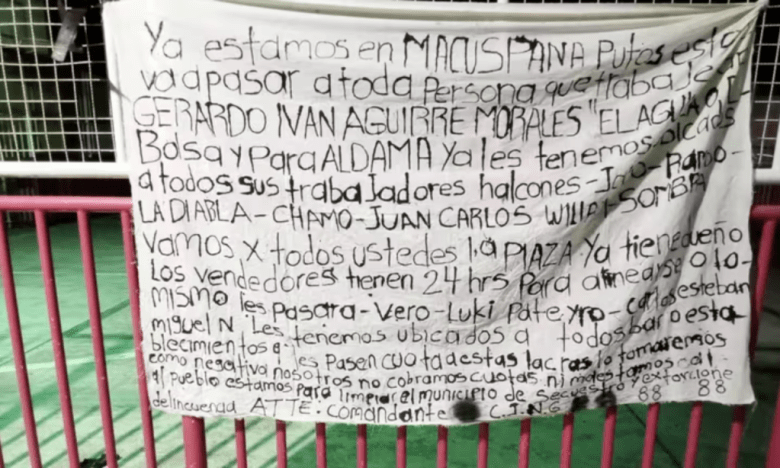 Ya estamos en MACUSPANA Putos esto
va a pasar a toda Persona que traba Je
GERARDO IVAN AGUIRRE MORALES "EL AGUA O
Bolsa y Para ALDAMA Ya les tenemos
a todos sus traba Jadores halcones
LA DIABLA - CHAMO - JUAN CARLOS SOMBRA
Vamos x todos ustedes la PLAZA Ya tiene dueño
Los vendedores tienen 24 hrs Para alinearse o lo-
MISMO les PASARA - Vero - Luki Pate yro - Carlos esteban
miguel N. Les tenemos ubicados a todos bar o esta
blecimientos q les Pasen cuota a estas lacras lo tomaremos
como negativa nosotros no cobramos cuotas ni molestamos
al Pueblo estamos Para limpiar el municipio de secuestro y extorcione
delincuencia ATTE: comandante C.J.N.G 88 88